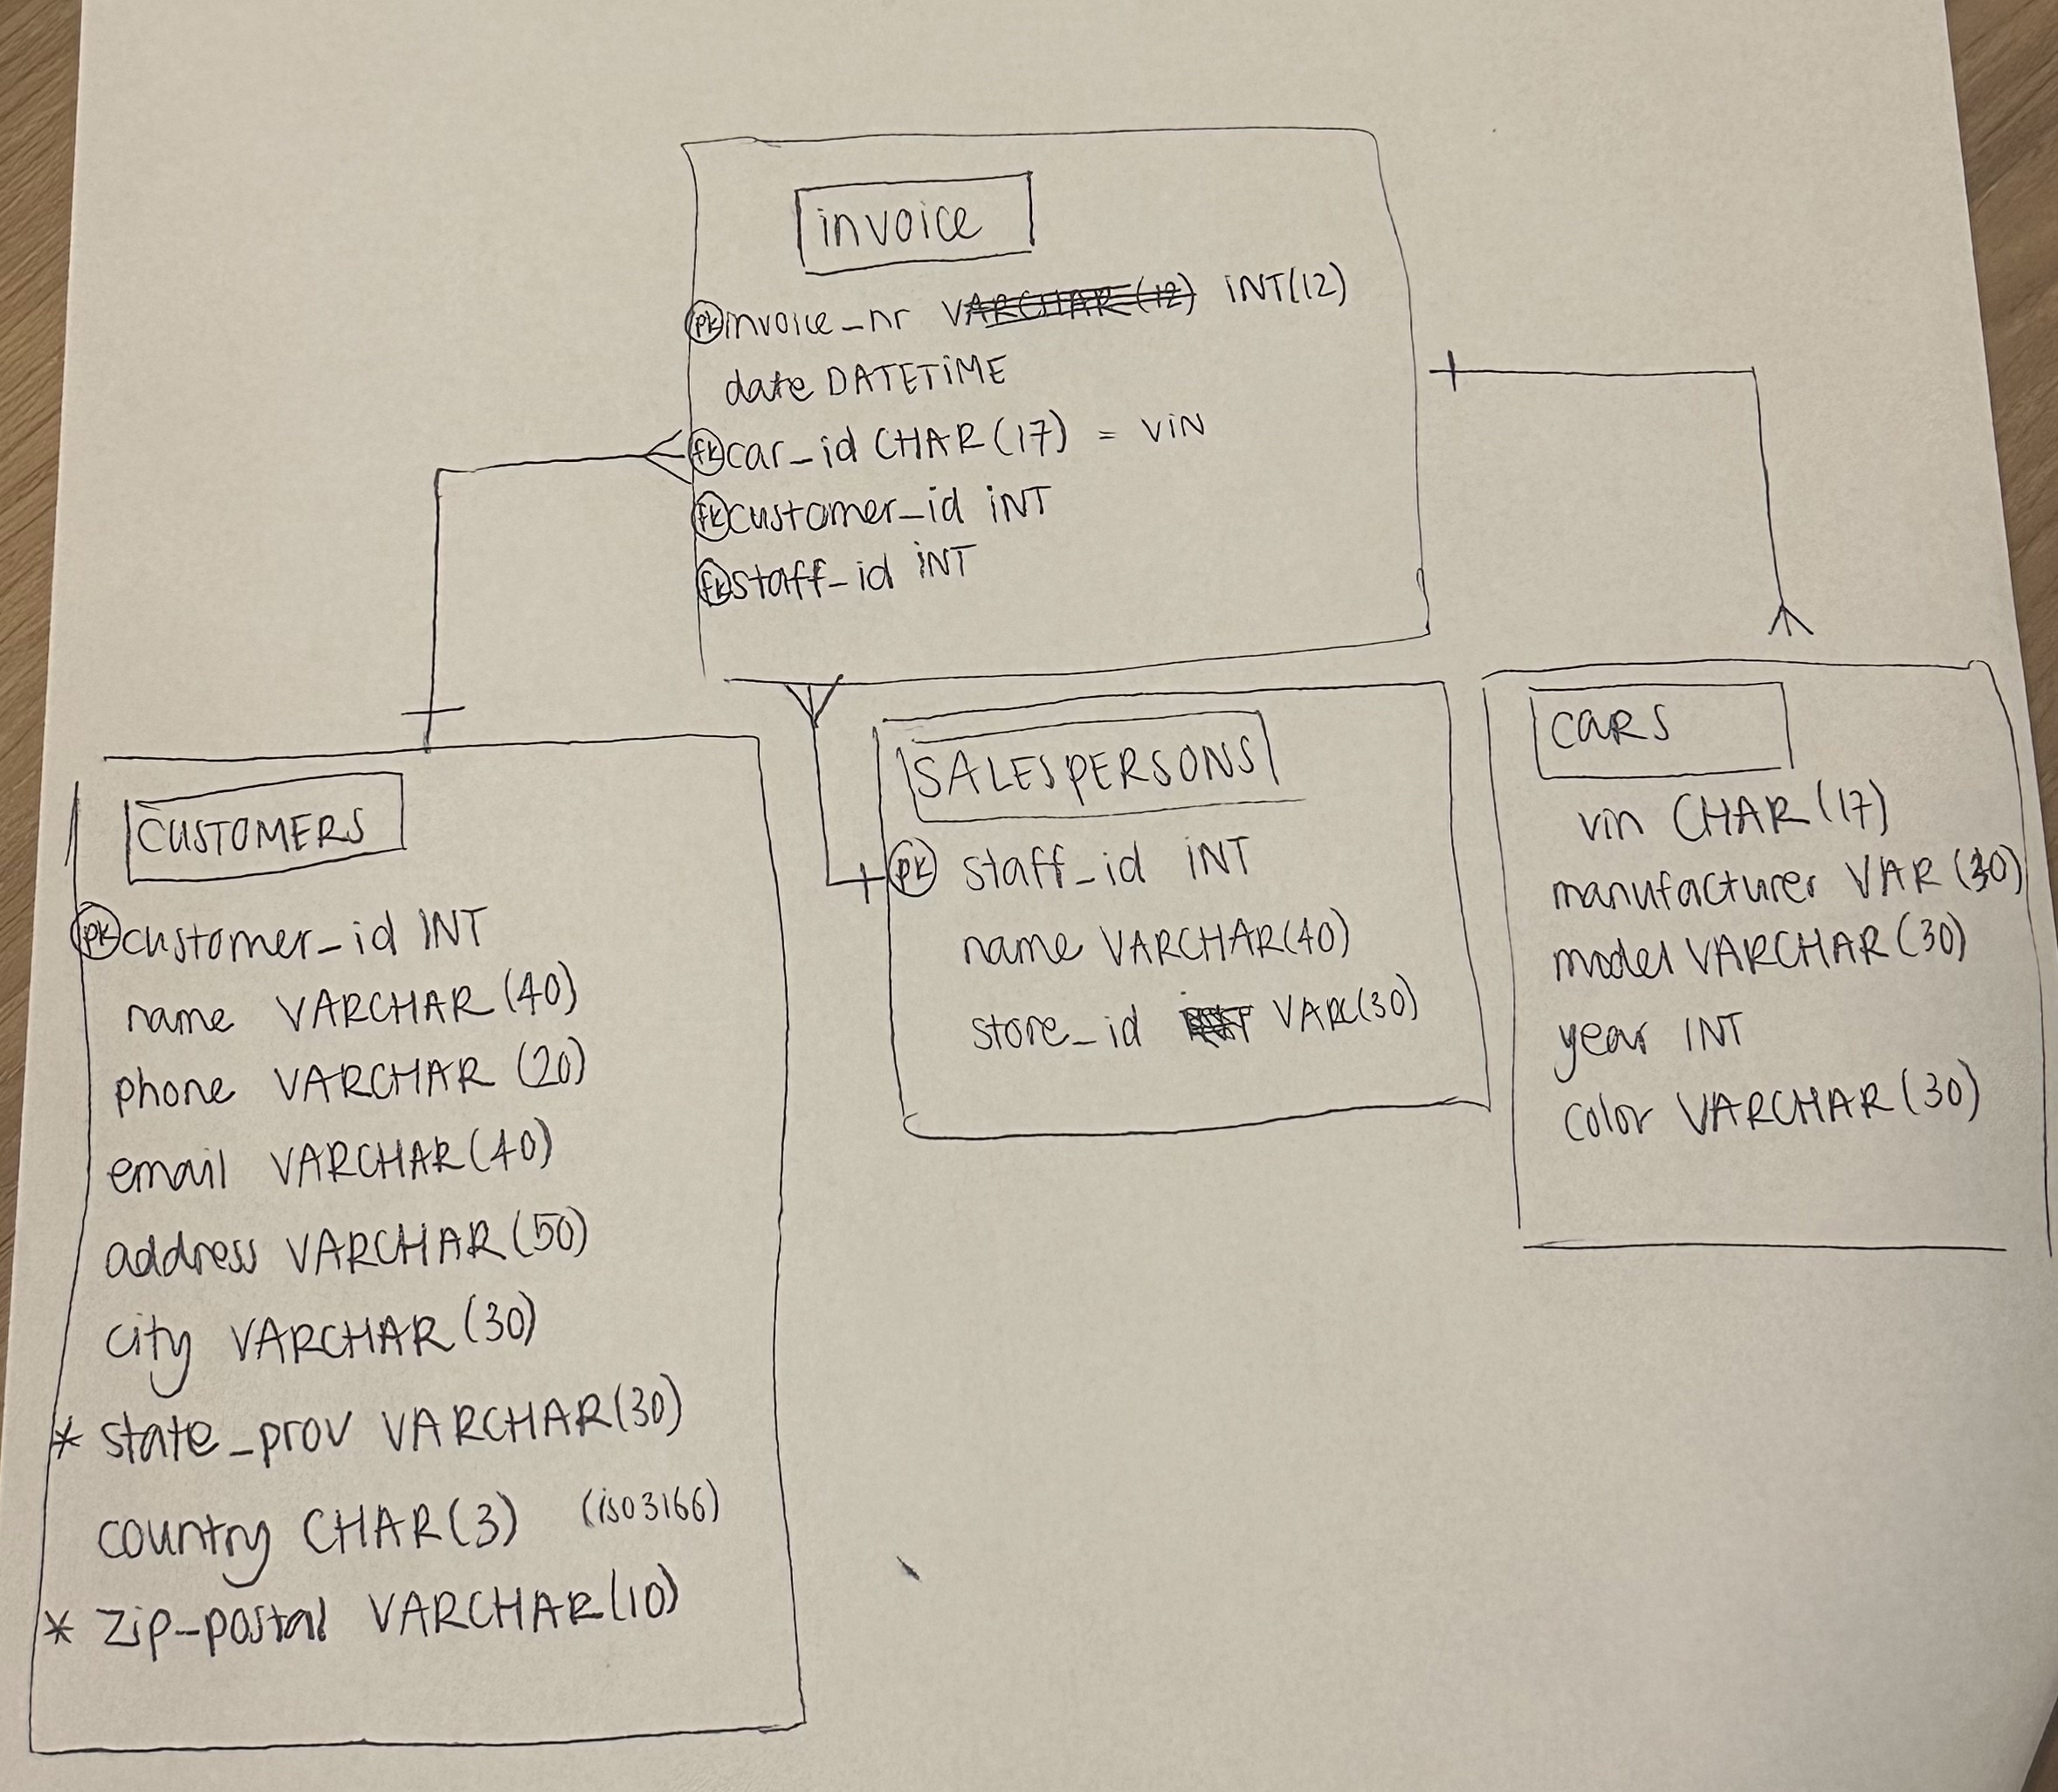 invoice
PK invoice_nr VARCHAR(12) INT(12)
date DATETIME
fk car_id CHAR(17) = VIN
fk customer_id INT
fk staff_id INT
CUSTOMERS
PK customer_id INT
name VARCHAR(40)
phone VARCHAR (20)
email VARCHAR(40)
address VARCHAR(50)
city VARCHAR(30)
* state_prov VARCHAR(30)
country CHAR(3) (iso3166)
* zip-postal VARCHAR(10)
SALESPERSONS
PK staff_id INT
name VARCHAR(40)
store_id VARC(30)
CARS
vin CHAR(17)
manufacturer VAR(30)
model VARCHAR(30)
year INT
color VARCHAR(30)